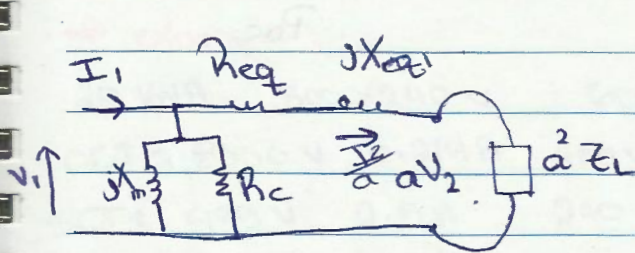 I₁ Req jXeq₁
V₁ jXm Rc I₂/a aV₂ a²ZL